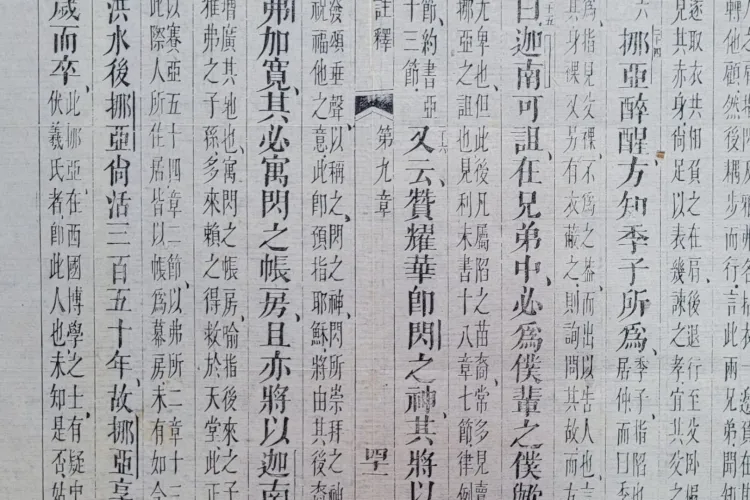 遂取衣共如負之在肩後退行至父臥
見其赤身尙足以表幾諫之孝宜其父之
挪亞醉醒、方知季子所爲、
季子指陷也
居仲而曰季
爲指見父裸、不爲之蓋、而出以告人也
其身裸又另有衣蔽之、則詢問其故而
曰、迦南可詛、在兄弟中、必爲僕輩之僕
尤卑也、但此後凡屬陷之苗裔、常多見賣
挪亞之詛也、見利未書十八章七節、律例
節、約書亞
十三節、
又云、贊耀華卽閃之神、其將以
註釋
第九章
發頌垂聲、以稱之、閃之神、閃所崇拜之神
祝福他之意、此卽預指耶穌、將由其後
弗加寬、其必寓閃之帳房、且亦將以迦南
增廣其地也、寓閃之帳房、喻指後來之子
雅弗之子孫、多來賴之得救於天堂、此正
以賽亞五十四章二節、以弗所二章十三
此際人所住居、皆以帳爲幕房、未有如今
洪水後、挪亞尙活三百五十年、故挪亞享
歲而卒、
此挪亞、在西國博學之士、有疑中
伏羲氏者、卽此人也、未知是否、姑